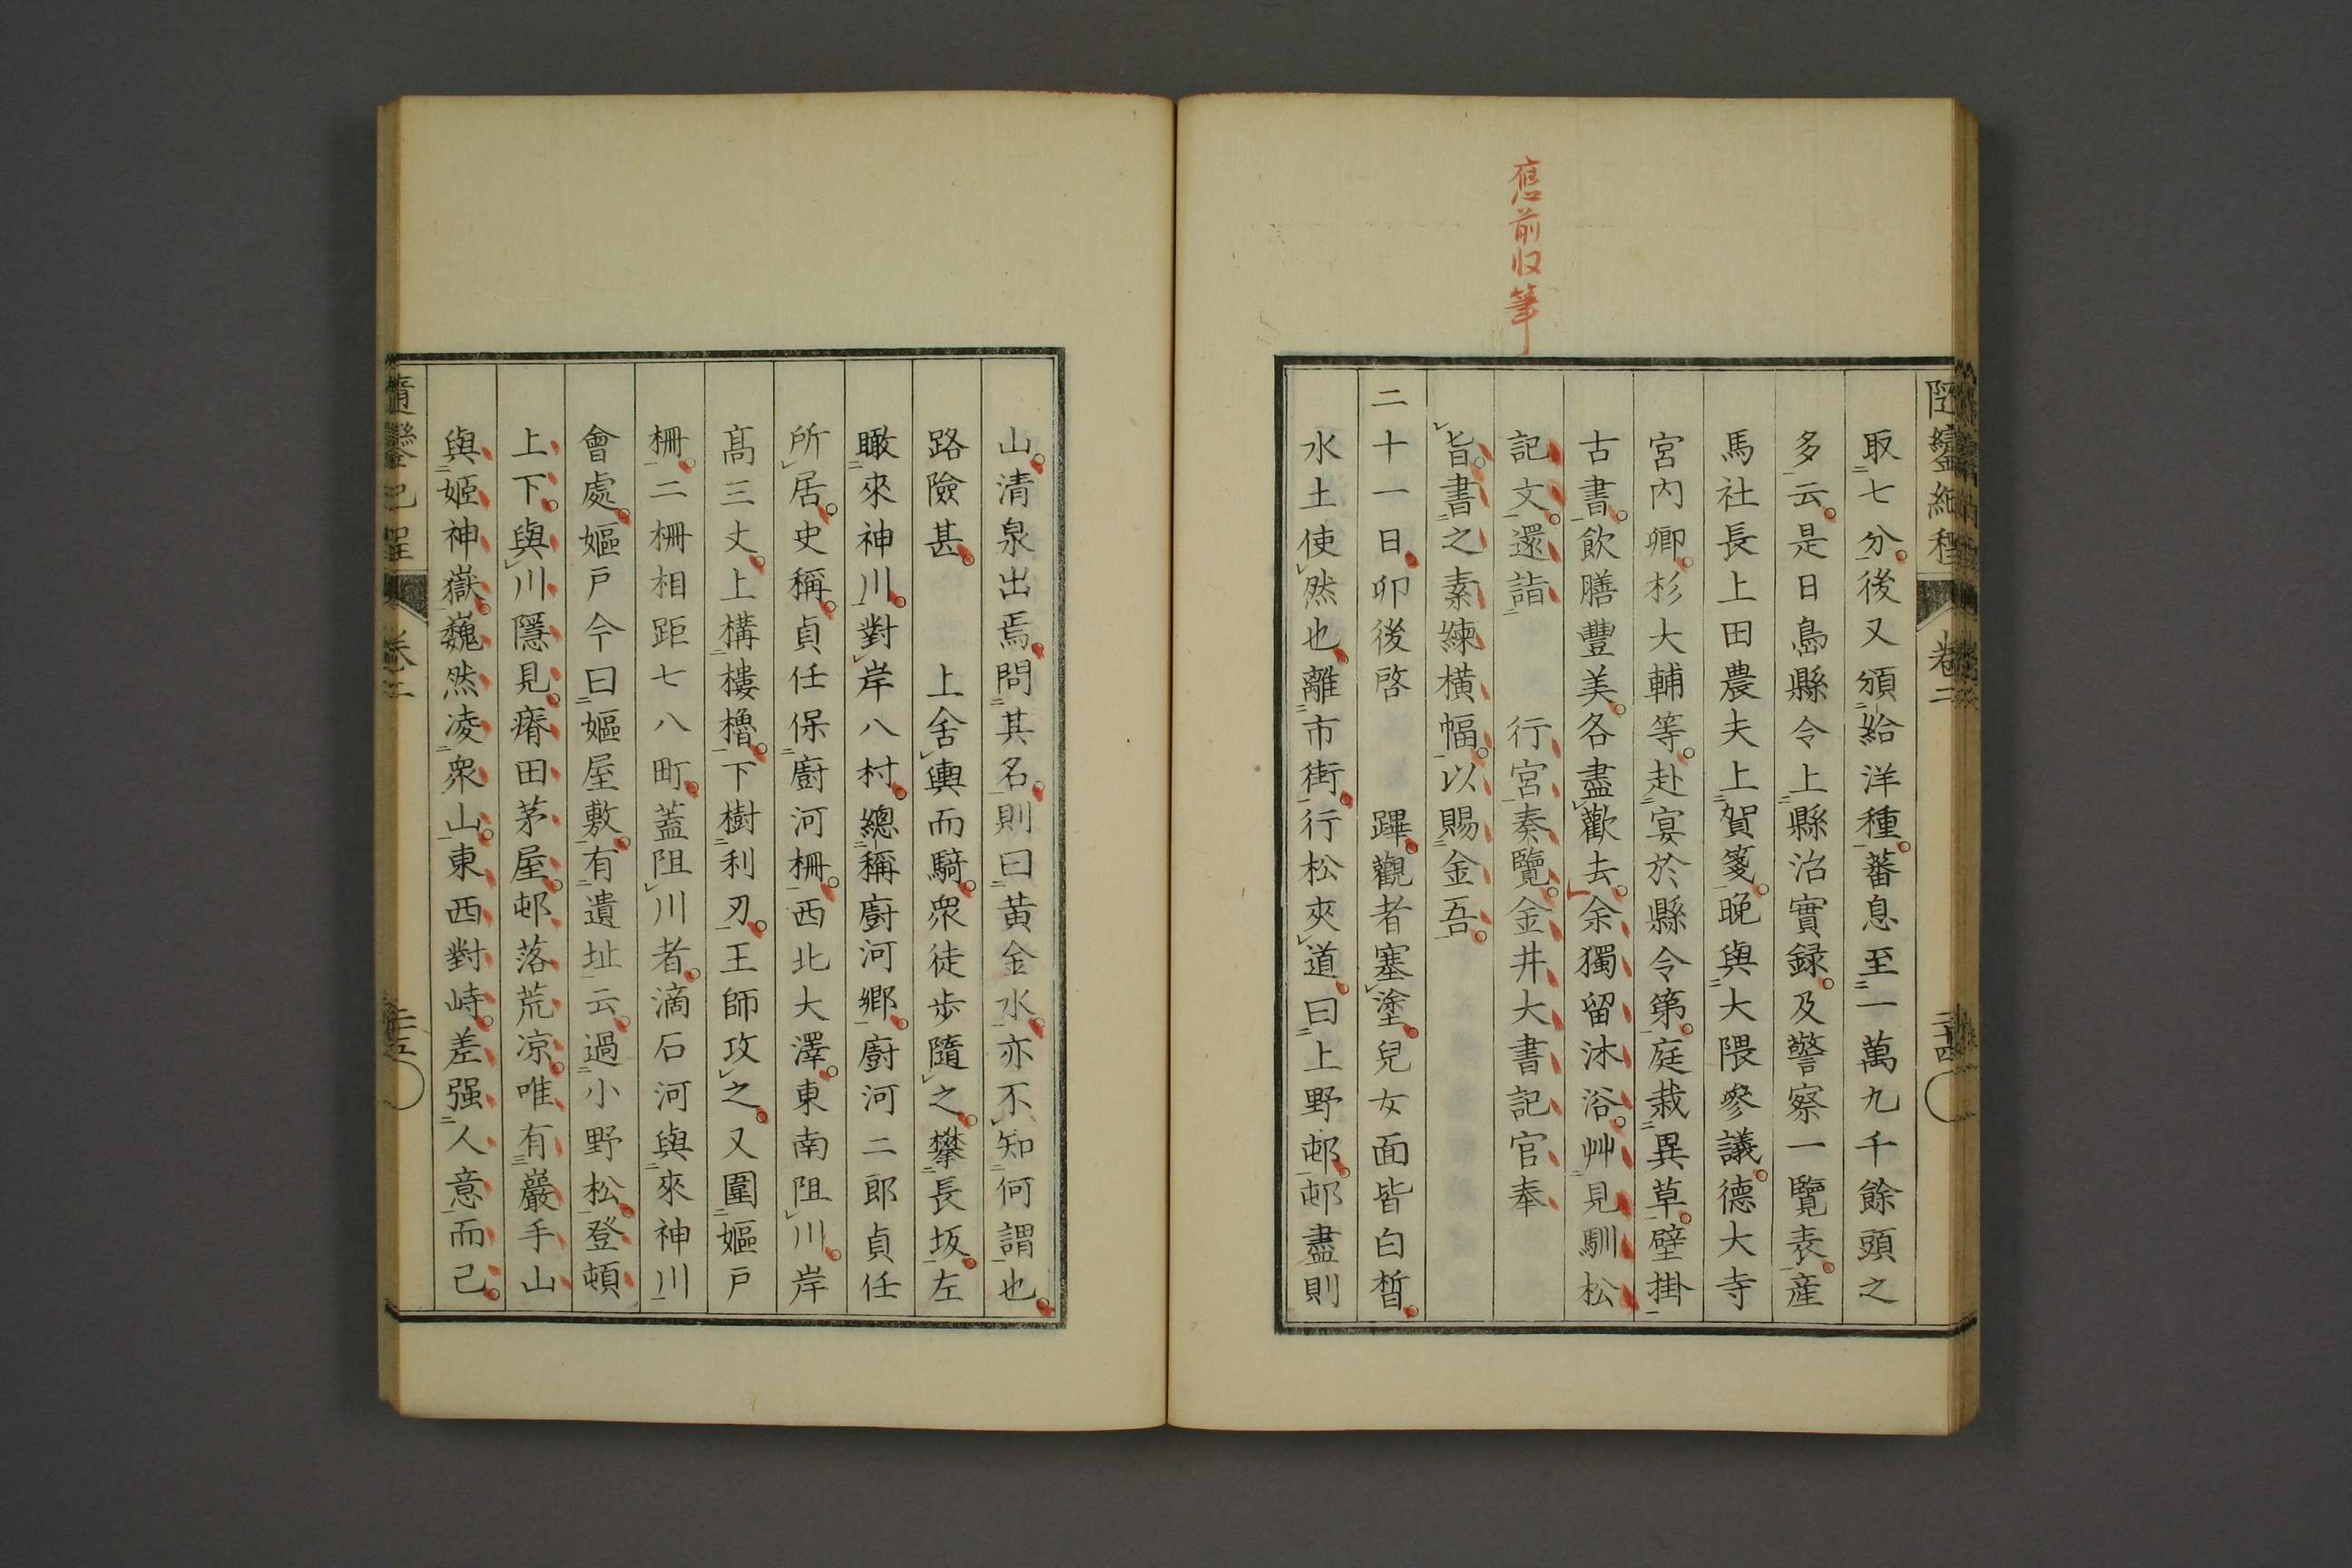 應前収筆
隨鑾紀程
卷二
二十四
取七分後又頒給洋種蕃息至一萬九千餘頭之
多云是日島縣令上縣治實録及警察一覽表産
馬社長上田農夫上賀箋晚與大隈參議德大寺
宮內卿杉大輔等赴宴於縣令第庭栽異草壁掛
古書飲膳豐美各盡歡去余獨留沐浴艸見馴松
記文還詣　　行宮奏覽金井大書記官奉
旨書之素練橫幅以賜金吾
二十一日卯後啓　　蹕觀者塞塗兒女面皆白皙
水土使然也離市街行松夾道曰上野邨邨盡則
山清泉出焉問其名則曰黄金水亦不知何謂也
路險甚　　上舍輿而騎衆徒歩隨之攀長坂左
瞰來神川對岸八村總稱廚河鄉廚河二郎貞任
所居史稱貞任保廚河柵西北大澤東南阻川岸
髙三丈上構樓櫓下樹利刃王師攻之又圍嫗戸
柵二柵相距七八町蓋阻川者滴石河與來神川
會處嫗戸今曰嫗屋敷有遺址云過小野松登頓
上下與川隱見瘠田茅屋邨落荒凉唯有巖手山
與姬神嶽巍然凌衆山東西對峙差强人意而已
隨鑾紀程
卷二
二十五